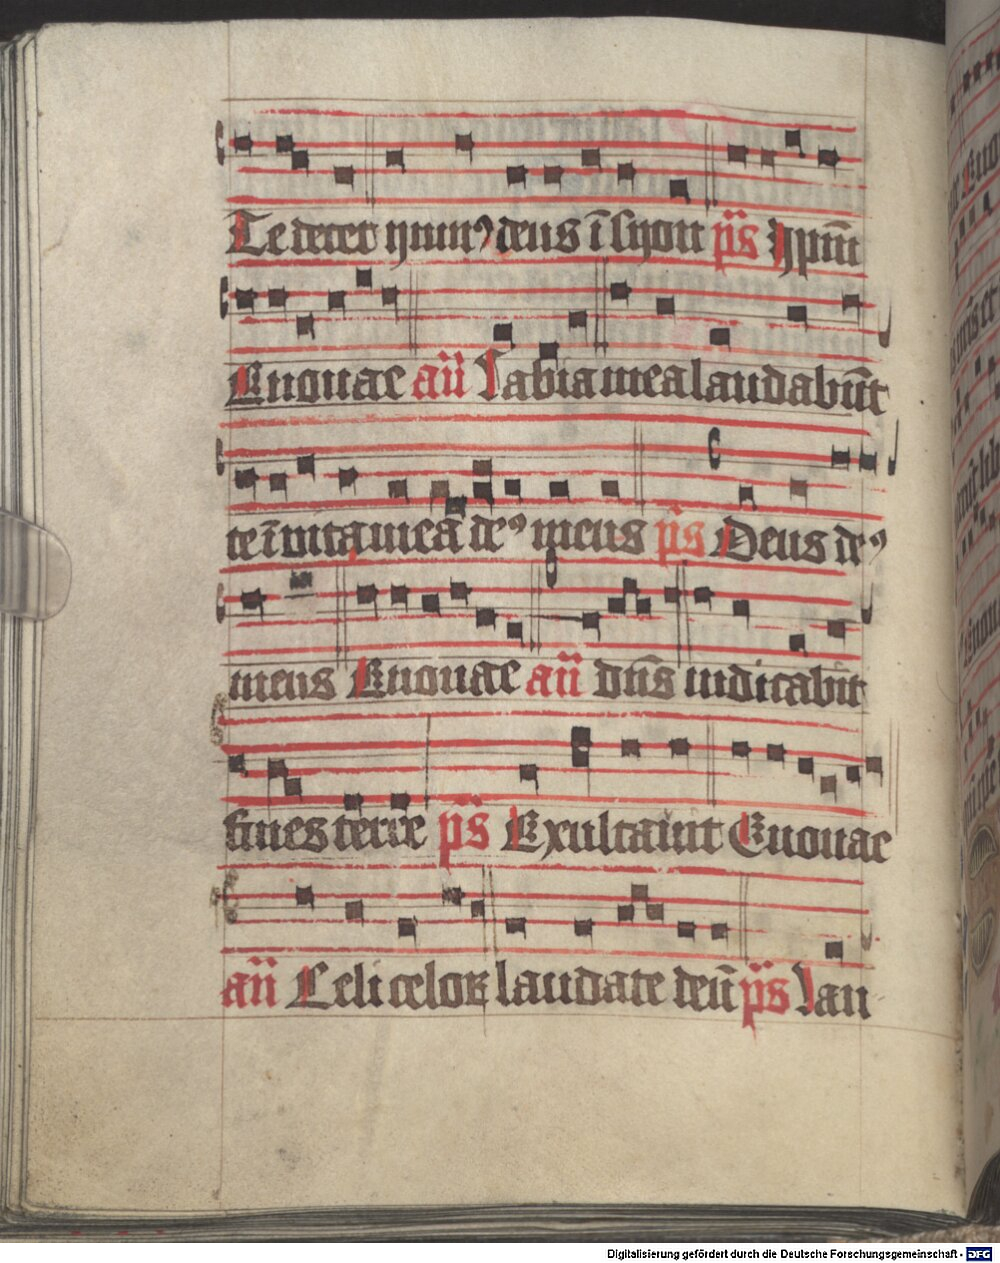 Te decet ymnꝰ deus ī syon p̄s Ipm̄
Euouae an̄ Labia mea laudabūt
te ī vita mea deꝰ meus p̄s Deus deꝰ
meus Euouae an̄ Dn̄s iudicabit
fines terre p̄s Exultauit Euouae
an̄ Celi celoꝝ laudate deū p̄s Lau
Digitalisierung gefördert durch die Deutsche Forschungsgemeinschaft - DFG